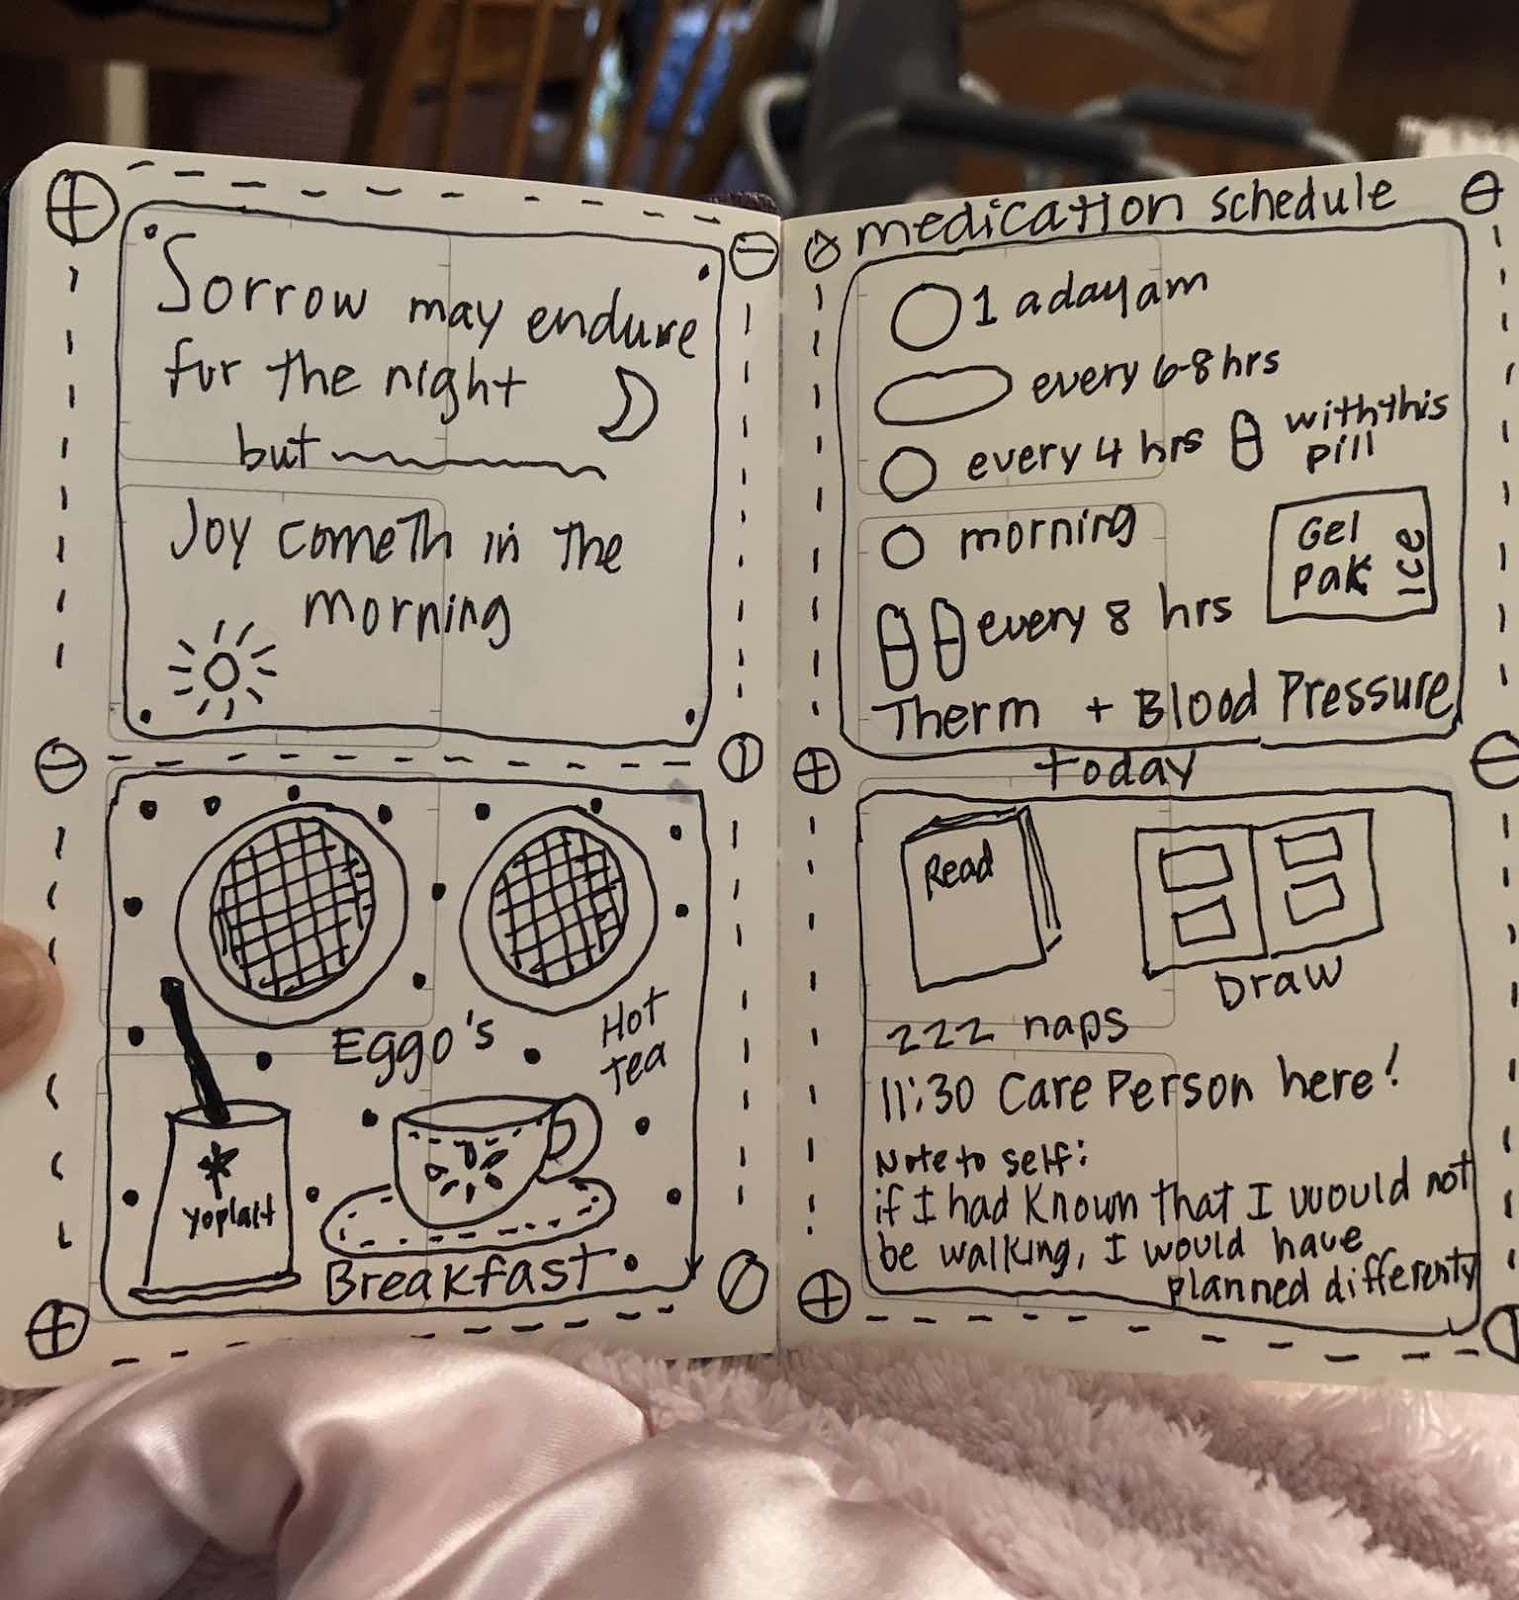 Sorrow may endure
for the night
but
Joy cometh in the
morning
Eggo's
Hot
tea
yoplait
Breakfast
medication schedule
1 a day am
every 6-8 hrs
every 4 hrs with this
pill
morning
Gel
pak
ICE
every 8 hrs
Therm + Blood Pressure
today
Read
Draw
zzz naps
11:30 Care Person here!
Note to self:
if I had known that I would not
be walking, I would have
planned differenty